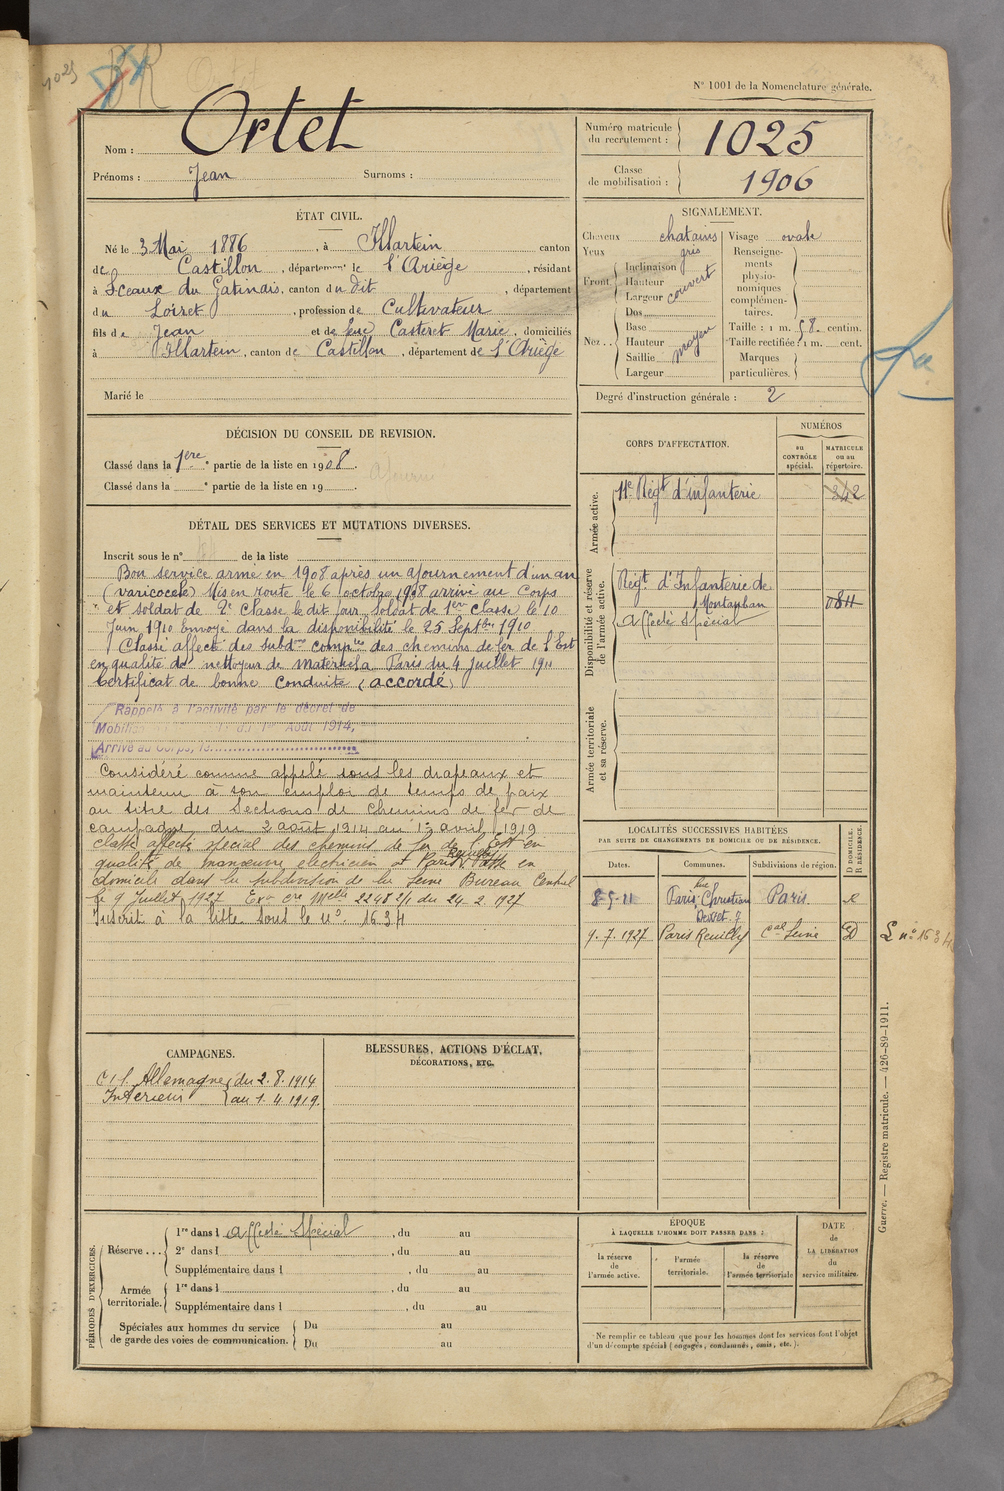 1025
BR
N° 1001 de la Nomenclature générale.
Nom : Ortet
Prénoms : Jean Surnoms :
Numéro matricule du recrutement : 1025
Classe de mobilisation : 1906
ÉTAT CIVIL.
Né le 3 Mai 1886, à Illartein canton
de Castillon, département de l'Ariège, résidant
à Sceaux du Gatinais, canton du dit, département
du Loiret, profession de Cultivateur
fils de Jean et de feue Casteret Marie, domiciliés
à Illartein, canton de Castillon, département de l'Ariège
Marié le
SIGNALEMENT.
Cheveux chatains
Yeux gris
Front Inclinaison
Hauteur
Largeur
couvert
Nez Dos
Base
Hauteur
Saillie
Largeur
moyen
Visage ovale
Renseignements physionomiques complémentaires.
Taille : 1 m. 58. centim.
Taille rectifiée : 1 m. cent.
Marques particulières.
Degré d'instruction générale : 2
DÉCISION DU CONSEIL DE REVISION.
Classé dans la 1ère partie de la liste en 1908.
Classé dans la e partie de la liste en 19
DÉTAIL DES SERVICES ET MUTATIONS DIVERSES.
Inscrit sous le n° de la liste
Bon service armé en 1908 après un ajournement d'un an
(varicocele) Mis en route le 6 octobre 1908 arrivé au Corps
et soldat de 2e classe le dit jour, Soldat de 1er classe le 10
Juin 1910 Envoyé dans la disponibilité le 25 Septbre 1910
Classé affecté des subdons compies des chemins de fer de l'Est
en qualité de nettoyeur de matériel a Paris du 4 Juillet 1911
Certificat de bonne Conduite (accordé)
Rappelé à l'activité par le décret de
Mobilisation du 1er Août 1914,
Arrivé au Corps, le
Considéré comme appelé sous les drapeaux et
maintenu à son emploi de temps de paix
au titre des Sections de Chemins de fer de
campagne du 2 août 1914 au 1er avril 1919
classé affecté spécial des chemins de fer de l'Est en
qualité de manœuvre electricien at Paris Reuilly Passé en
domicile dans la subdivision de la Seine Bureau Central
le 9 Juillet 1927 Exon cre Melle 2248 2/1 du 24-2 1927
Inscrit à la liste sous le n° 1634
CORPS D'AFFECTATION.
NUMÉROS
au CONTRÔLE spécial.
MATRICULE ou au répertoire.
Armée active.
11e Régt d'infanterie 342
Disponibilité et réserve de l'armée active.
Régt d'Infanterie de
Montauban
affecté spécial
Armée territoriale et sa réserve.
LOCALITÉS SUCCESSIVES HABITÉES
PAR SUITE DE CHANGEMENTS DE DOMICILE OU DE RÉSIDENCE.
Dates. Communes. Subdivisions de région. D DOMICILE. R RÉSIDENCE.
8-5-11 Paris, rue Christian Dewet. 7 Paris. R
9.7.1927 Paris Reuilly Cal Seine D
L n° 1634
CAMPAGNES.
C. l'Allemagne du 2.8.1914
Intérieur au 1.4.1919.
BLESSURES, ACTIONS D'ÉCLAT,
DÉCORATIONS, ETC.
PÉRIODES D'EXERCICES.
Réserve 1re dans l affecté spécial, du au
2e dans l, du au
Supplémentaire dans l, du au
Armée territoriale. 1re dans l, du au
Supplémentaire dans l, du au
Spéciales aux hommes du service de garde des voies de communication. Du au
Du au
ÉPOQUE
À LAQUELLE L'HOMME DOIT PASSER DANS :
la réserve de l'armée active.
l'armée territoriale.
la réserve de l'armée territoriale
DATE de LA LIBÉRATION du service militaire.
Ne remplir ce tableau que pour les hommes dont les services font l'objet
d'un décompte spécial (engagés, condamnés, omis, etc.).
Guerre. — Registre matricule. — 426-89-1911.